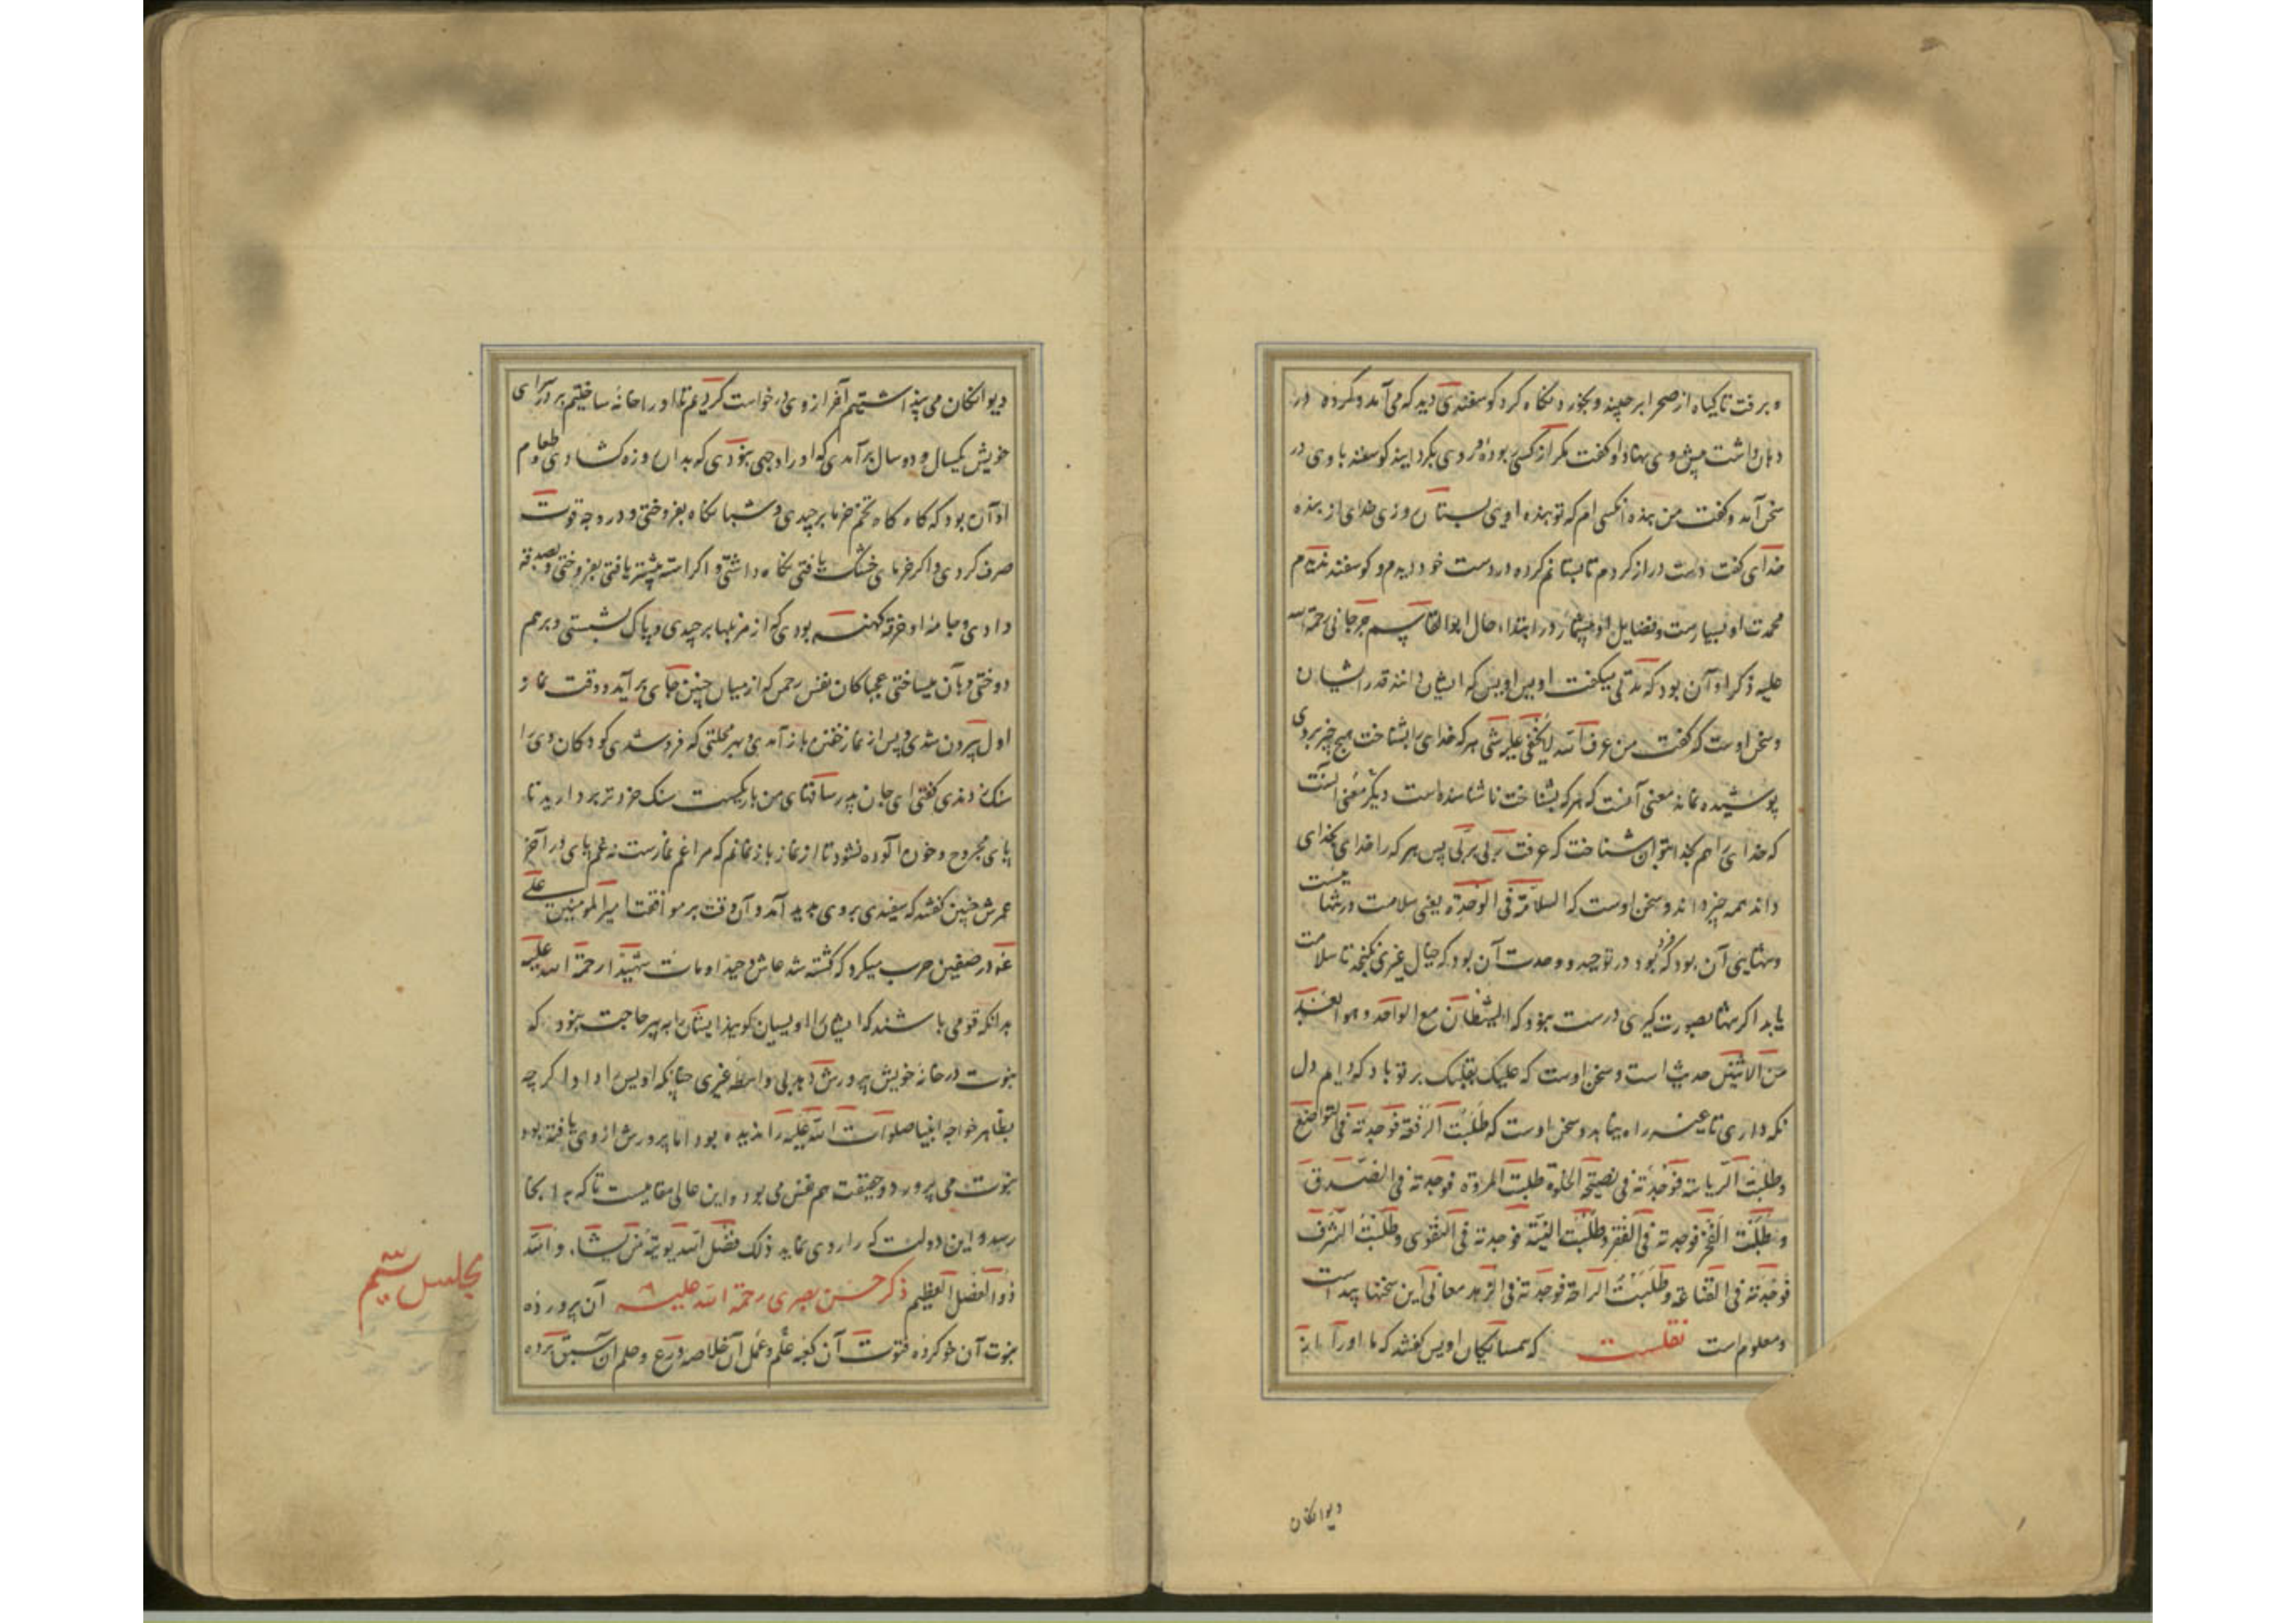 و برفت تا گیاه از صحرا برچیند و بخورد نگاه کرد گوسفندی دید که می آمد و گرده در
دهان داشت پیش وی بنهاد او گفت مگر از کسی ربوده روی بگردانید گوسفند با وی در
سخن آمد و گفت من بنده آنکسی ام که تو بنده اویی بستان روزی خدای از بنده
خدای گفت دست دراز کردم تا بستانم گرده در دست خود دیدم و گوسفند ندیدم
محمدت او بسیارست و فضایل او بیشمار در ابتداء حال ابوالقاسم جرجانی رحمة الله
علیه ذکر او آن بود که مدتی میگفت اویس اویس که ایشان دانند قدر ایشان
و سخن اوست که گفت من عرف الله لا یخفی علیه شی هر که خدای را بشناخت هیچ چیز بروی
پوشیده نماند معنی آنست که هر که بشناخت تا شناسنده است دیگر معنی آنست
که خدای را هم بخدا بتوان شناخت که عرفت ربی بربی پس هر که را خدای بخدای
داند همه چیز داند و سخن اوست که السلامة فی الوحدة یعنی سلامت در تنهائیست
و تنهایی آن بود که فرد بود در توحید و وحدت آن بود که خیال غیری نگنجد تا سلامت
یابد اگر تنها بصورت گیری درست نبود که الشیطان مع الواحد و هو ابعد
من الاثنین حدیث است و سخن اوست که علیک بقلبک بر تو باد که دایم دل
نگه داری تا غیر در راه نیابد و سخن اوست که طلبت الرفعة فوجدته فی التواضع
و طلبت الریاسة فوجدته فی نصیحة الخلق و طلبت المروة فوجدته فی الصدق
و طلبت الفخر فوجدته فی الفقر و طلبت النسبة فوجدته فی التقوی و طلبت الشرف
فوجدته فی القناعة و طلبت الراحة فوجدته فی الزهد معانی این سخنها پیداست
و معلوم است نقلست که همسایگان اویس گفتند که ما او را از
دیوانگان
دیوانگان می پنداشتیم آخر از وی درخواست کردیم تا او را خانه ساختیم بر در سرای
خویش یکسال و دو سال برآمدی که او را وجهی نبودی که بدان روزه گشادی و طعام
او آن بود که گاه گاه تخم خرما برچیدی و شبانگاه بفروختی و در وجه قوت
صرف کردی و اگر خرمای خشک یافتی نگاه داشتی و اگر استه بیشتر یافتی بفروختی و بصدقه
دادی و جامه او خرقه کهنه بودی که از مزبلها برچیدی و پاک بشستی و بر هم
دوختی و بآن میساختی عجبا کان نفس رحمن که از میان چنین جای برآید و وقت نماز
اول بیرون شدی و پس از نماز خفتن باز آمدی و بهر محلتی که فرو شدی کودکان وی را
سنک زدندی گفتی ای جان پدر ساقهای من باریکست سنک خردتر بردارید تا
پای مجروح و خون آلوده نشود تا از نماز باز نمانم که مرا غم نمازست نه غم پای در آخر
عمرش چنین گفتند که سفیدی بر وی پدید آمد و آن وقت بر موافقت امیر المومنین علی
عنه در صفین حرب میکرد که کشته شد عاش وحیدا و مات شهیدا رحمة الله علیه
بدانکه قومی باشند که ایشان را اویسیان گویند ایشان را به پیر حاجت نبود که
نبوت در خانه خویش پرورش دهد بی واسطه غیری چنانکه اویس را داد اگر چه
بظاهر خواجه انبیا صلوات الله علیه را ندیده بود اما پرورش از وی یافته بود
نبوت می پرورد و حقیقت هم نفس می بود و این عالی مقامیست تا که را آنجا
رسد و این دولت که را روی نماید ذلک فضل الله یوتیه من یشاء و الله
ذو الفضل العظیم ذکر حسن بصری رحمة الله علیه آن پرورده
نبوت آن خو کرده فتوت آن کعبه علم و عمل آن خلاصه ورع و حلم آن سبق برده
مجلس سیم